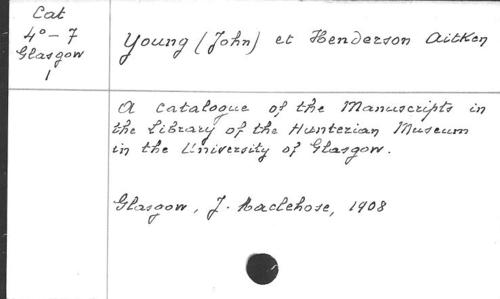 Cat
4° - 7
Glasgow
1
Young (John) et Henderson Aitken
A catalogue of the Manuscripts in
the Library of the Hunterian Museum
in the University of Glasgow.
Glasgow, J. Maclehose, 1908